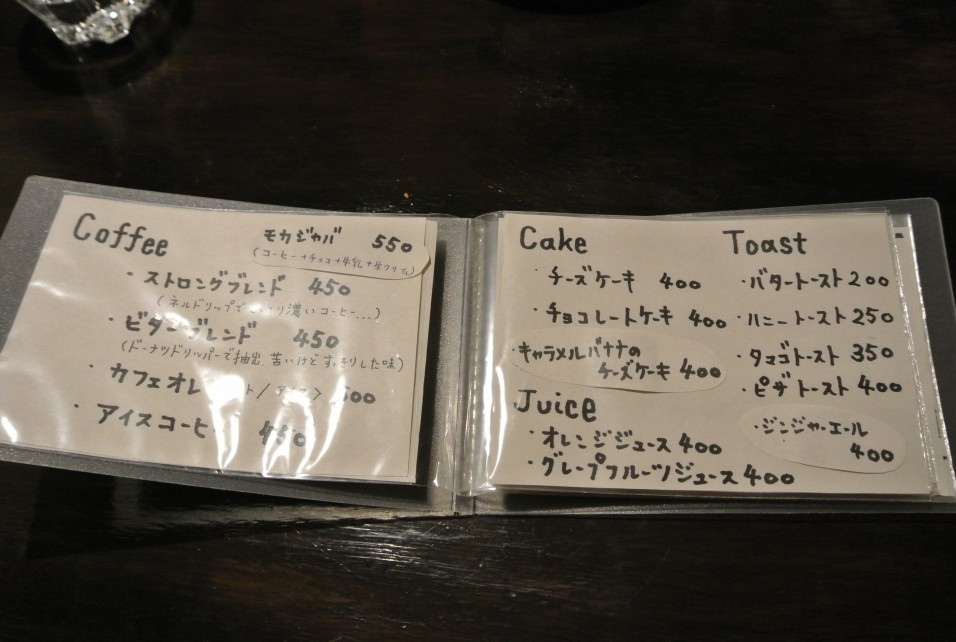 Coffee
モカジャバ 550
(コーヒー+チョコ+牛乳+生クリーム)
・ストロングブレンド 450
(ネルドリップで 濃いコーヒー...)
・ビターブレンド 450
(ドーナツドリッパーで抽出、苦いけどすっきりした味)
・カフェオレ
・アイスコーヒー 450
Cake
・チーズケーキ 400
・チョコレートケーキ 400
・キャラメルバナナの
チーズケーキ 400
Juice
・オレンジジュース 400
・グレープフルーツジュース 400
Toast
・バタートースト 200
・ハニートースト 250
・タマゴトースト 350
・ピザトースト 400
・ジンジャーエール
400